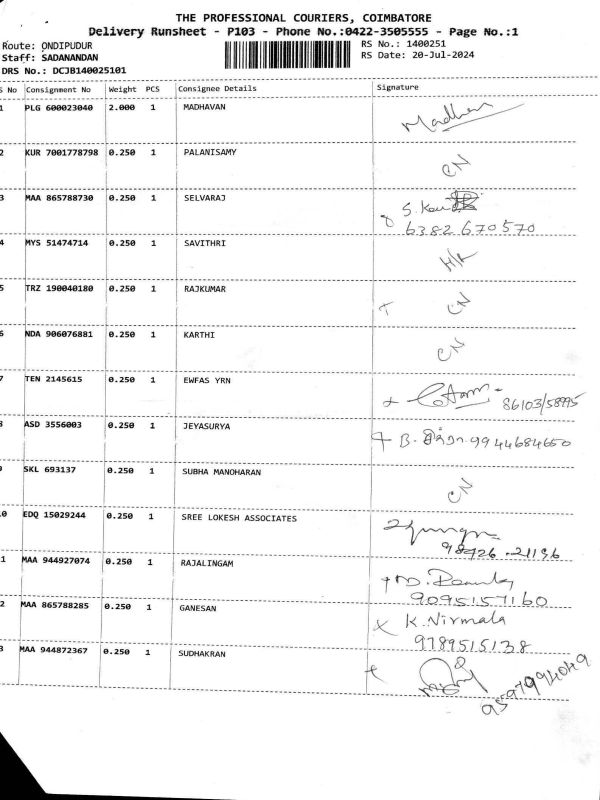 THE PROFESSIONAL COURIERS, COIMBATORE
Delivery Runsheet - P103 - Phone No.:0422-3505555 - Page No.:1
Route: ONDIPUDUR RS No.: 1400251
Staff: SADANANDAN RS Date: 20-Jul-2024
DRS No.: DCJB140025101
S No Consignment No Weight PCS Consignee Details Signature
1 PLG 600023040 2.000 1 MADHAVAN Madhan
2 KUR 7001778798 0.250 1 PALANISAMY CN
3 MAA 865788730 0.250 1 SELVARAJ S.
6382 670570
4 MYS 51474714 0.250 1 SAVITHRI H/K
5 TRZ 190040180 0.250 1 RAJKUMAR CN
6 NDA 906076881 0.250 1 KARTHI CN
7 TEN 2145615 0.250 1 EWFAS YRN 86103/58995
8 ASD 3556003 0.250 1 JEYASURYA B. 9944684650
9 SKL 693137 0.250 1 SUBHA MANOHARAN CN
0 EDQ 15029244 0.250 1 SREE LOKESH ASSOCIATES
98426-21196
1 MAA 944927074 0.250 1 RAJALINGAM
9095157160
2 MAA 865788285 0.250 1 GANESAN K. Nirmala
9789515138
3 MAA 944872367 0.250 1 SUDHAKRAN
9597994049